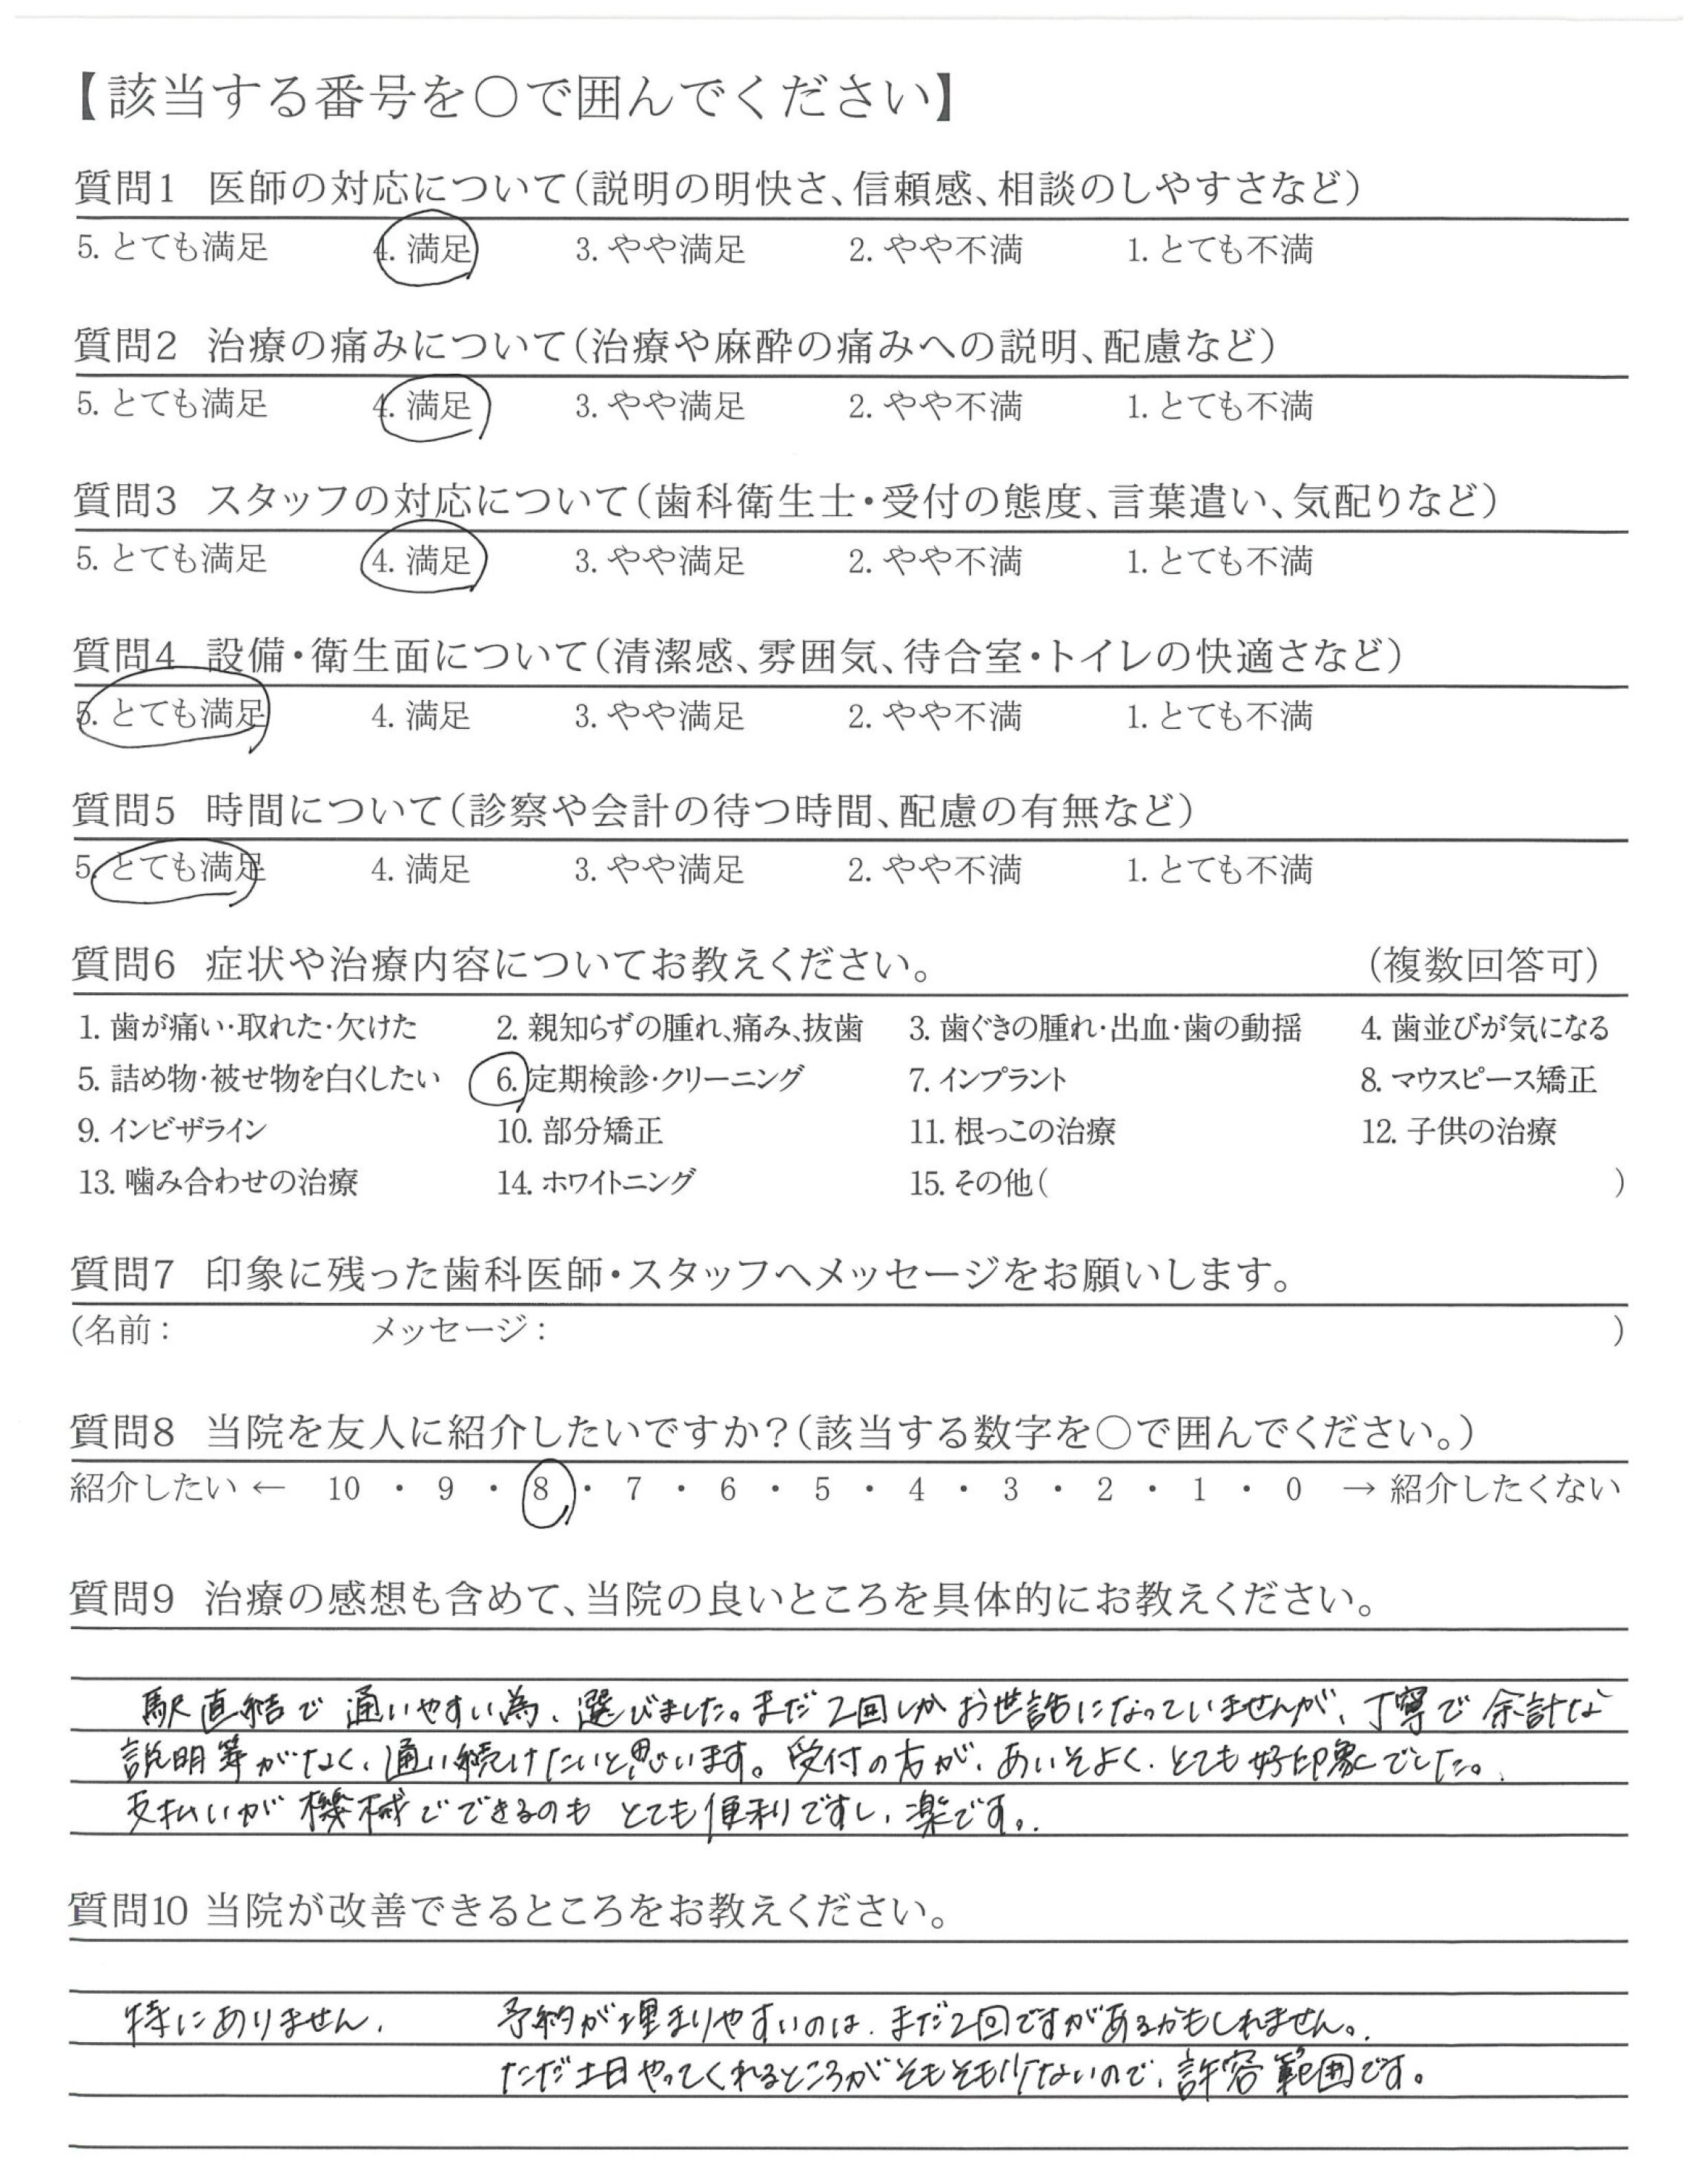 【該当する番号を〇で囲んでください】
質問1 医師の対応について(説明の明快さ、信頼感、相談のしやすさなど)
5. とても満足 4. 満足 3. やや満足 2. やや不満 1. とても不満
質問2 治療の痛みについて(治療や麻酔の痛みへの説明、配慮など)
5. とても満足 4. 満足 3. やや満足 2. やや不満 1. とても不満
質問3 スタッフの対応について(歯科衛生士・受付の態度、言葉遣い、気配りなど)
5. とても満足 4. 満足 3. やや満足 2. やや不満 1. とても不満
質問4 設備・衛生面について(清潔感、雰囲気、待合室・トイレの快適さなど)
5. とても満足 4. 満足 3. やや満足 2. やや不満 1. とても不満
質問5 時間について(診察や会計の待つ時間、配慮の有無など)
5. とても満足 4. 満足 3. やや満足 2. やや不満 1. とても不満
質問6 症状や治療内容についてお教えください。 (複数回答可)
1. 歯が痛い・取れた・欠けた 2. 親知らずの腫れ、痛み、抜歯 3. 歯ぐきの腫れ・出血・歯の動揺 4. 歯並びが気になる
5. 詰め物・被せ物を白くしたい 6. 定期検診・クリーニング 7. インプラント 8. マウスピース矯正
9. インビザライン 10. 部分矯正 11. 根っこの治療 12. 子供の治療
13. 噛み合わせの治療 14. ホワイトニング 15. その他( )
質問7 印象に残った歯科医師・スタッフへメッセージをお願いします。
(名前: メッセージ: )
質問8 当院を友人に紹介したいですか?(該当する数字を〇で囲んでください。)
紹介したい ← 10 ・ 9 ・ 8 ・ 7 ・ 6 ・ 5 ・ 4 ・ 3 ・ 2 ・ 1 ・ 0 → 紹介したくない
質問9 治療の感想も含めて、当院の良いところを具体的にお教えください。
駅直結で通いやすい為、選びました。まだ2回しかお世話になっていませんが、丁寧で余計な
説明等がなく、通い続けたいと思います。受付の方が、あいそよく、とても好印象でした。
支払いが機械でできるのもとても便利ですし、楽です。
質問10 当院が改善できるところをお教えください。
特にありません。 予約が埋まりやすいのは、まだ2回ですがあるかもしれません。
ただ土日やってくれるところがそもそも少ないので、許容範囲です。